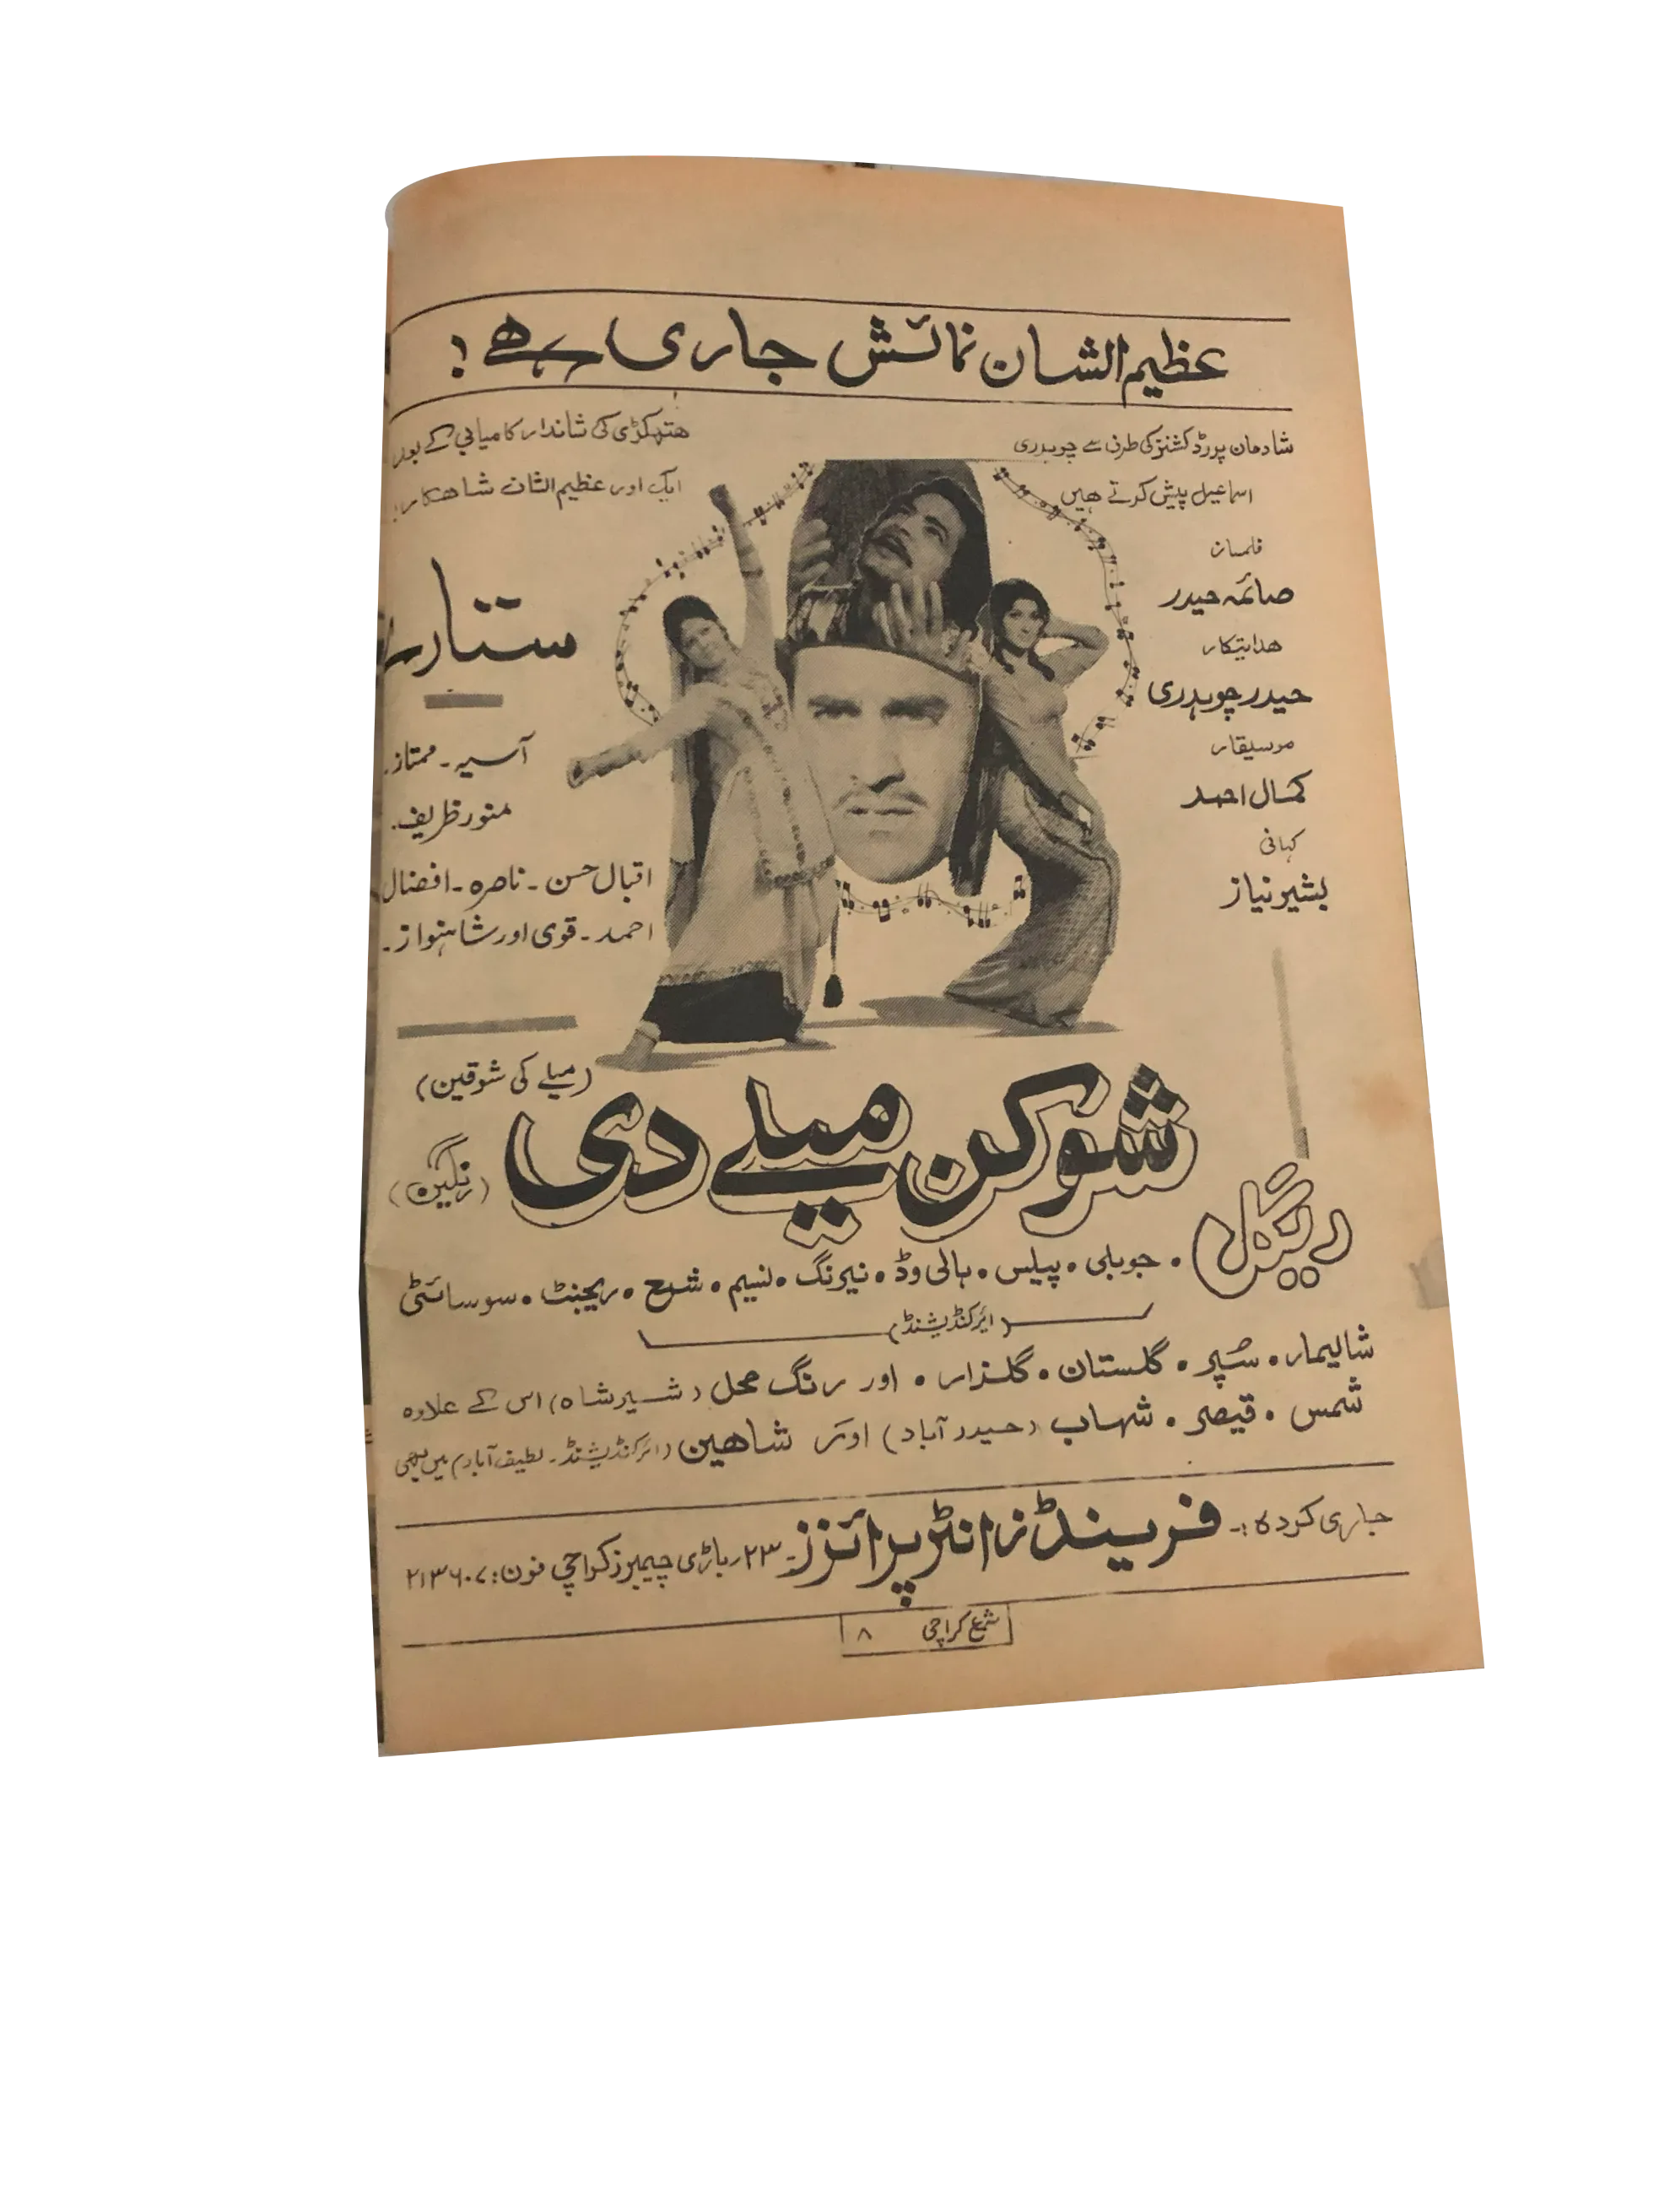 عظیم الشان نمائش جاری ہے!
شادمان پروڈکشنز کی طرف سے چوہدری
اسماعیل پیش کرتے ہیں
ہتھکڑی کی شاندار کامیابی کے بعد
ایک اور عظیم الشان شاہکار!
فلمساز
صائمہ حیدر
ہدایتکار
حیدر چوہدری
موسیقار
کمال احمد
کہانی
بشیر نیاز
ستارے
آسیہ ۔ ممتاز ۔
منور ظریف ۔
اقبال حسن ۔ ناصرہ ۔ افضال
احمد ۔ قوی اور شاہنواز ۔
(میلے کی شوقین)
شوکن میلے دی
(رنگین)
ریگل • جوبلی • پیلس • ہالی وڈ • نیرنگ • نسیم • شمع • ریجنٹ • سوسائٹی
(ایرکنڈیشنڈ)
شالیمار • سُپر • گلستان • گلزار • اور رنگ محل (شیر شاہ) اس کے علاوہ
شمس • قیصر • شہاب (حیدر آباد) اور شاہین (ائرکنڈیشنڈ ۔ لطیف آباد) میں بھی
جاری کردہ :۔ فرینڈز انٹرپرائزز ۔ ۲۳ ر باڑی چیمبرز کراچی فون : ۲۱۳۶۰۷
شمع کراچی ۸